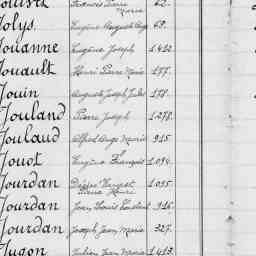 François Pierre Marie 42.
Jolys Eugène Auguste Ange 62.
Jouanne Eugène Joseph 1412.
Jouault Henri Pierre Marie 177.
Jouin Auguste Joseph Jules 178.
Jouland Pierre Joseph 1278.
Joulaud Alfred Ange Marie 915.
Jouot Eugène François 1094.
Jourdan Pierre Marie 1095.
Jourdan Jean Louis Constant 916.
Jourdan Joseph Jean Marie 327.
Jugon Julien Jean Marie 1413.